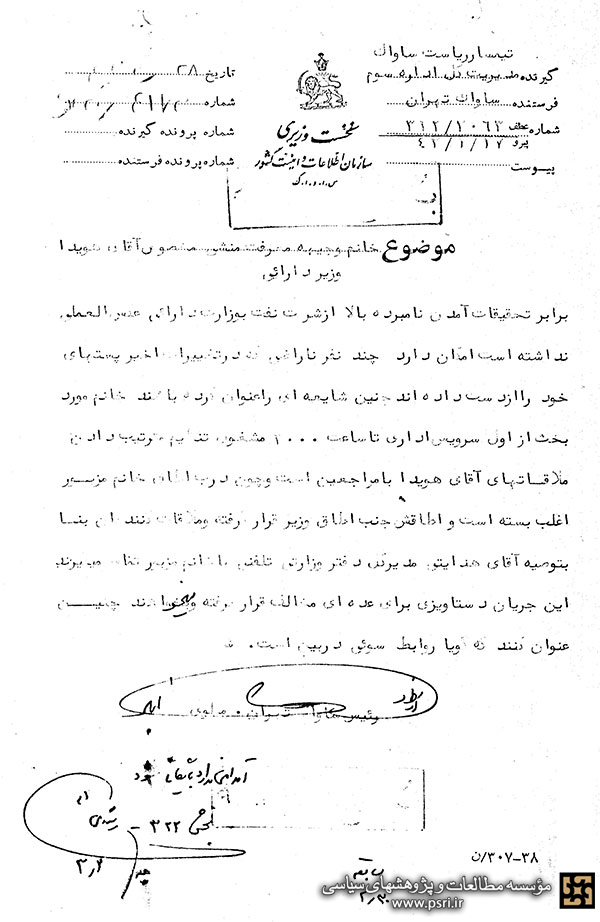 تیمسار ریاست ساواک
گیرنده مدیریت کل اداره سوم
فرستنده ساواک تهران
شماره عطف ۳۱۲/۲۰۶۳
پیرو ۴۲/۱/۱۷
پیوست
نخست وزیری
سازمان اطلاعات و امنیت کشور
س.ا.و.ا.ک
تاریخ ۲۸
شماره
شماره پرونده گیرنده
شماره پرونده فرستنده
موضوع خانم وجیهه معرفت منشی مخصوص آقای هویدا
وزیر دارائی
برابر تحقیقات آمدن نامبرده بالا از شرکت نفت بوزارت دارائی عکس العملی
نداشته است امکان دارد چند نفر ناراضی که در تغییرات اخیر پستهای
خود را از دست داده اند چنین شایعه ای را عنوان کرده باشند خانم مورد
بحث از اول سرویس اداری تا ساعت ۲۰۰۰ مشغول تنظیم و ترتیب دادن
ملاقاتهای آقای هویدا با مراجعین است و چون درب اطاق خانم مزبور
اغلب بسته است و اطاقش جنب اطاق وزیر قرار گرفته و ملاقات کنندگان بنا
بتوصیه آقای هدایتی مدیرکل دفتر وزارتی تلفنی با خانم مزبور تماس میگیرند
این جریان دستاویزی برای عده ای مخالف قرار گرفته و میخواهند چنین
عنوان کنند که گویا روابط سوئی در بین است.
رئیس ساواک تهران. مولوی
بخش ۳۲۲
۳۰۷-۳۸/ن
مؤسسه مطالعات و پژوهشهای سیاسی
www.psri.ir